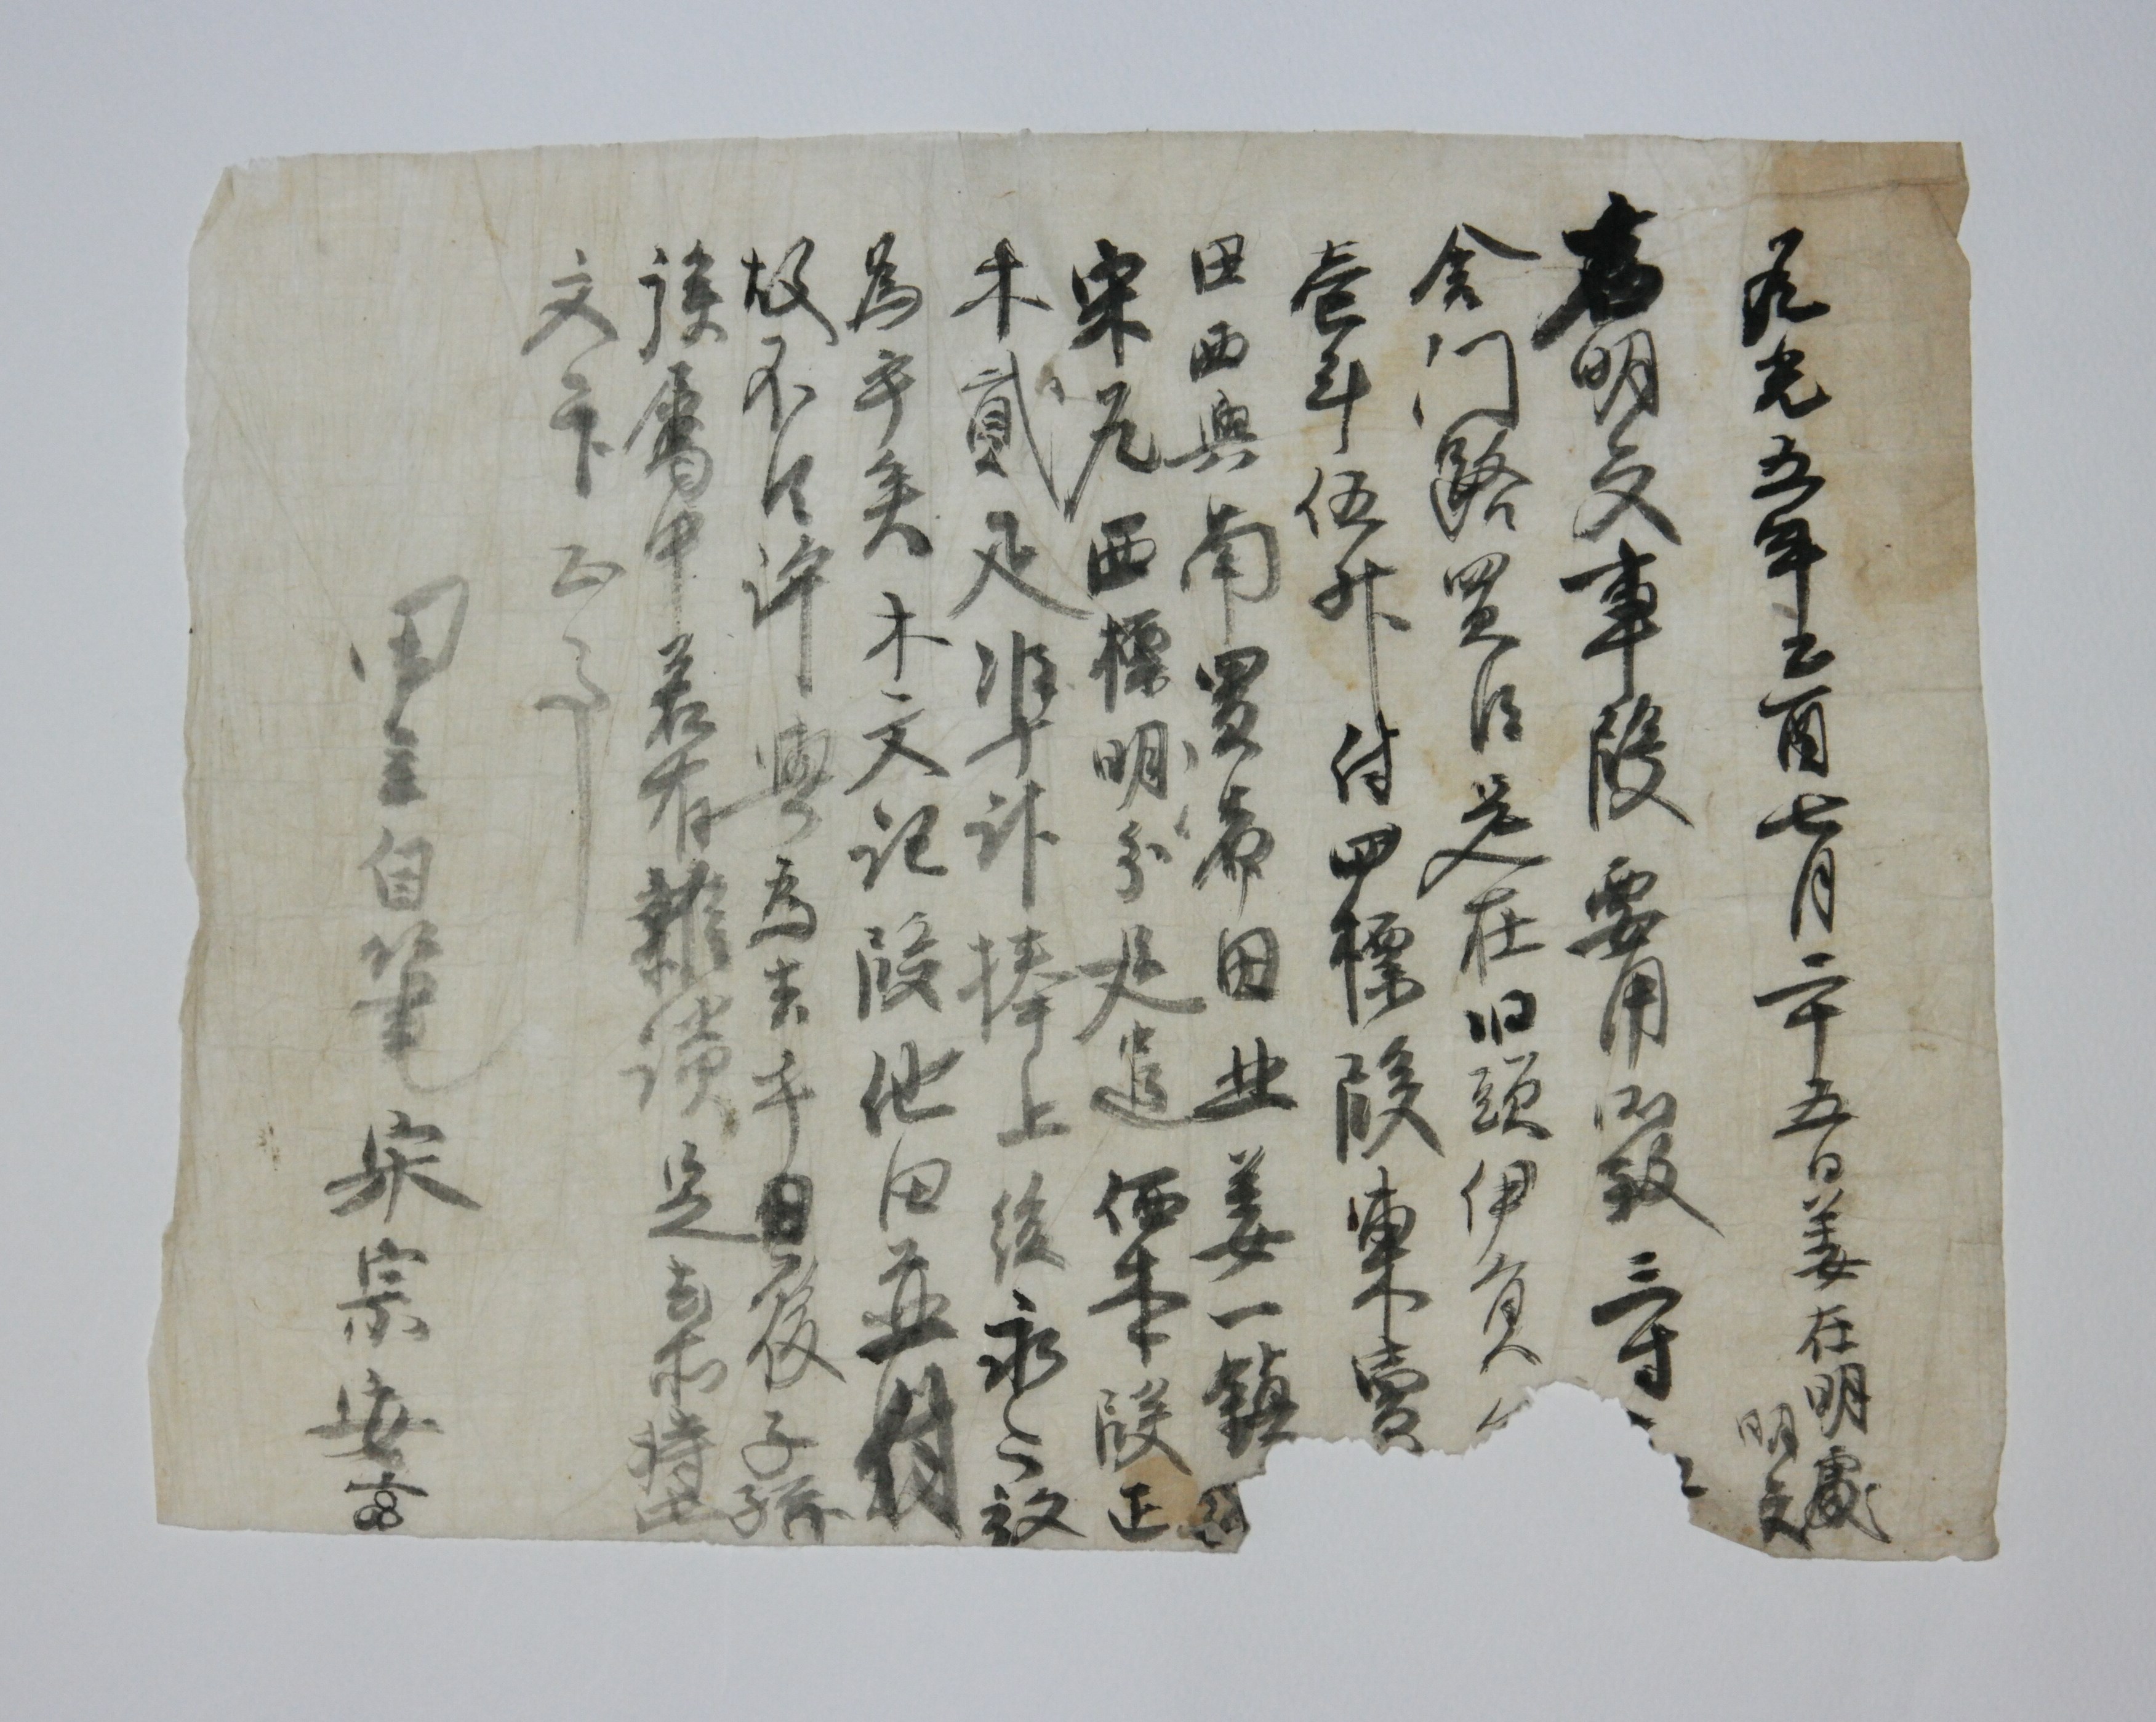 道光五年乙酉七月二十五日姜在明處
明文
右明文事段要用所致三寸
舍門路買得是在旧頭伊負
壹斗伍升付田標段東賣
田西與南買 田北姜一鎮
宋 西標明分是遣価本段正
木貳疋准計捧上後永永放
為乎矣本文記段他田並付
故不得許與為去乎日後子孫
族屬中若有雜談是去等持此
文卞正事
田主自筆宋宗安